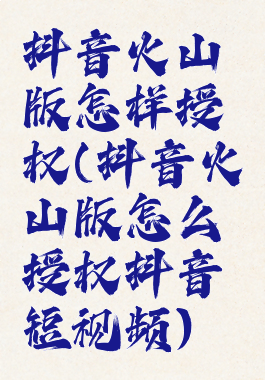 抖音火山
版怎样授
权(抖音火
山版怎么
授权抖音
短视频)